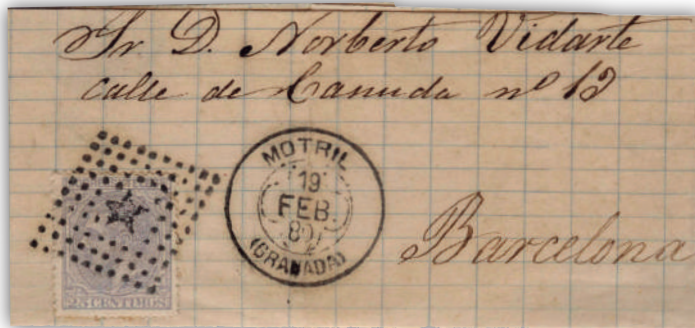 Sr D. Norberto Vidarte
calle de Canuda nº 13
MOTRIL
19
FEB.
80
(GRANADA)
Barcelona
25 CENTIMOS